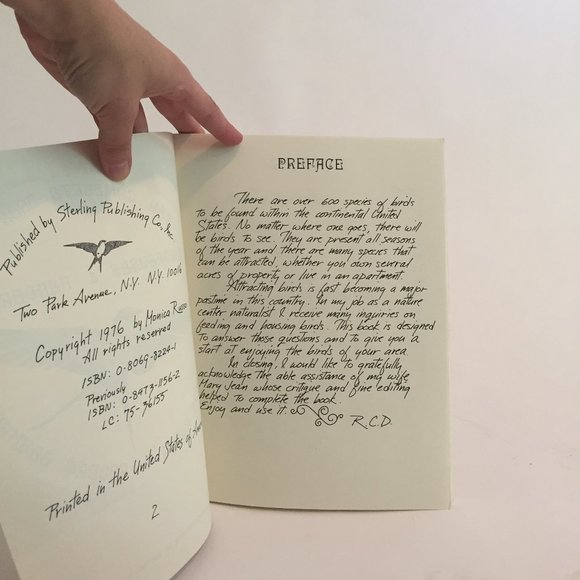 Published by Sterling Publishing Co., Inc.
Two Park Avenue, N.Y. N.Y. 10016
Copyright 1976 by Monica
All rights reserved
ISBN: 0-8069-8224-1
Previously
ISBN: 0-8473-1156-2
LC: 75-36155
Printed in the United States of
2
PREFACE
There are over 600 species of birds
to be found within the continental United
States. No matter where one goes, there will
be birds to see. They are present all seasons
of the year and there are many species that
can be attracted, whether you own several
acres of property or live in an apartment.
Attracting birds is fast becoming a major
pastime in this country. In my job as a nature
center naturalist I receive many inquiries on
feeding and housing birds. This book is designed
to answer those questions and to give you a
start at enjoying the birds of your area.
In closing, I would like to gratefully
acknowledge the able assistance of my wife,
Mary Jean whose critique and fine editing
helped to complete the book.
Enjoy and use it.
R.C.D.